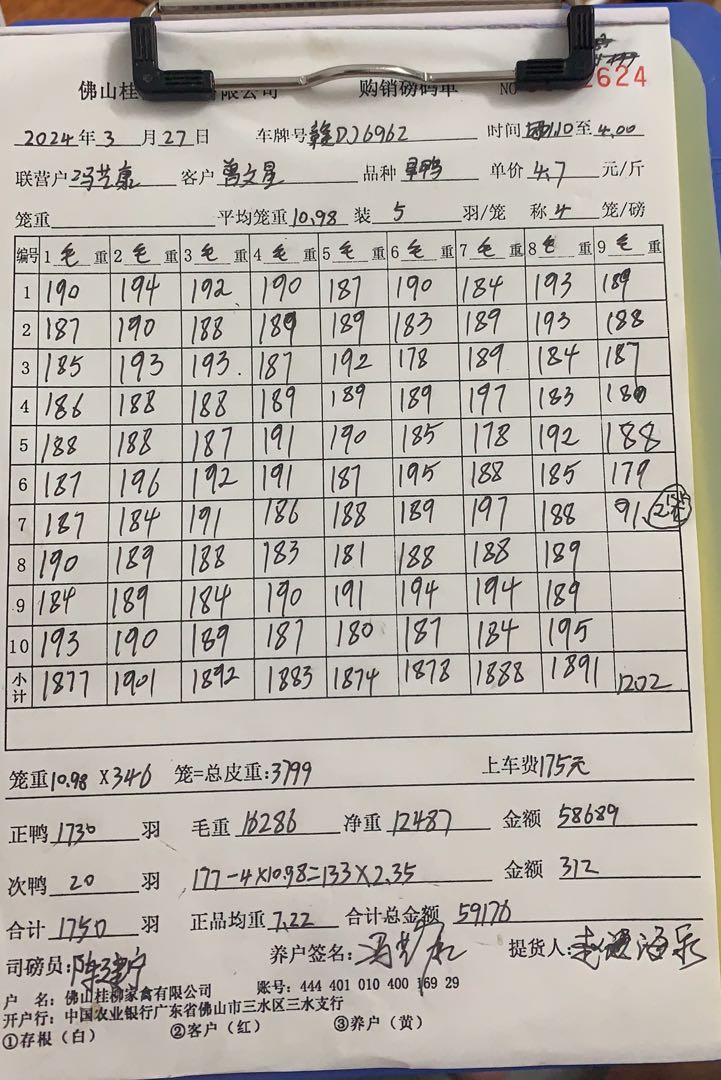 佛山桂 有限公司 购销磅码单 NO 2624
2024年3月27日 车牌号 赣DJ6962 时间 至4.00
联营户 冯艺康 客户 曾文星 品种 单价 4.7 元/斤
笼重 平均笼重10.98 装 5 羽/笼 称 4 笼/磅
编号 1 毛 重 2 毛 重 3 毛 重 4 毛 重 5 毛 重 6 毛 重 7 毛 重 8 毛 重 9 毛 重
1 190 194 192 190 187 190 184 193 189
2 187 190 188 189 189 183 189 193 188
3 185 193 193. 187 192 178 189 184 187
4 186 188 188 189 189 189 197 183 180
5 188 188 187 191 190 185 178 192 188
6 187 196 192 191 187 195 188 185 179
7 187 184 191 186 188 189 197 188 91.
8 190 189 188 183 181 188 188 189
9 184 189 184 190 191 194 194 189
10 193 190 189 187 180 187 184 195
小计 1877 1901 1892 1883 1874 1878 1888 1891 1202
笼重10.98 X 346 笼=总皮重:3799 上车费175元
正鸭 1730 羽 毛重 16286 净重 12487 金额 58689
次鸭 20 羽 177-4×10.98=133×2.35 金额 312
合计 1750 羽 正品均重 7.22 合计总金额 59176
司磅员: 养户签名: 冯艺康 提货人:
户 名: 佛山桂柳家禽有限公司 账号: 444 401 010 400 169 29
开户行: 中国农业银行广东省佛山市三水区三水支行
①存根（白） ②客户（红） ③养户（黄）